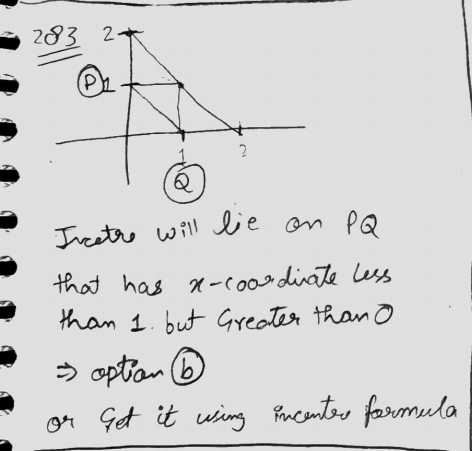 283
2
P 1
1 2
Q
Incetre will lie on PQ
that has x-coordinate less
than 1. but Greater than 0
⇒ option b
or Get it using incentre formula